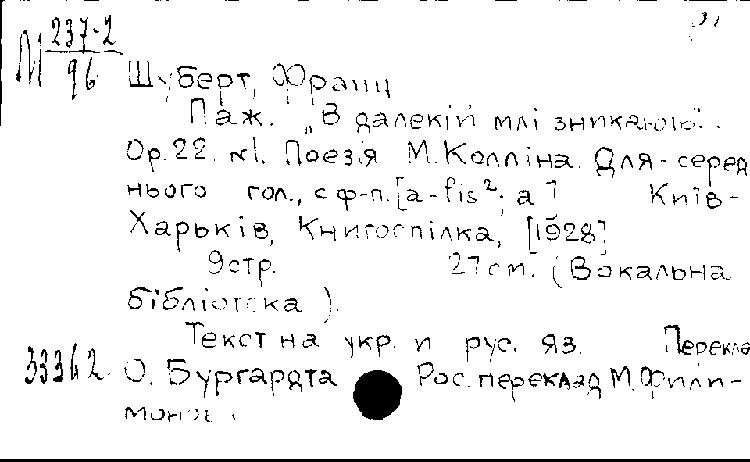 М 237-2
96
Шуберт, Франц
Паж. „В далекій млі зникаючі..
Op.22. №1. Поезія М. Колліна. Для серед
нього гол., с ф-п. [a-fis²; a]   Київ-
Харьків, Книгоспілка, [1928]
9стр.   27см. (Вокальна
бібліотека).
Текст на укр. и рус. яз.   Перекла
33362 О. Бургардта   Рос. переклад М. Фили-
монов